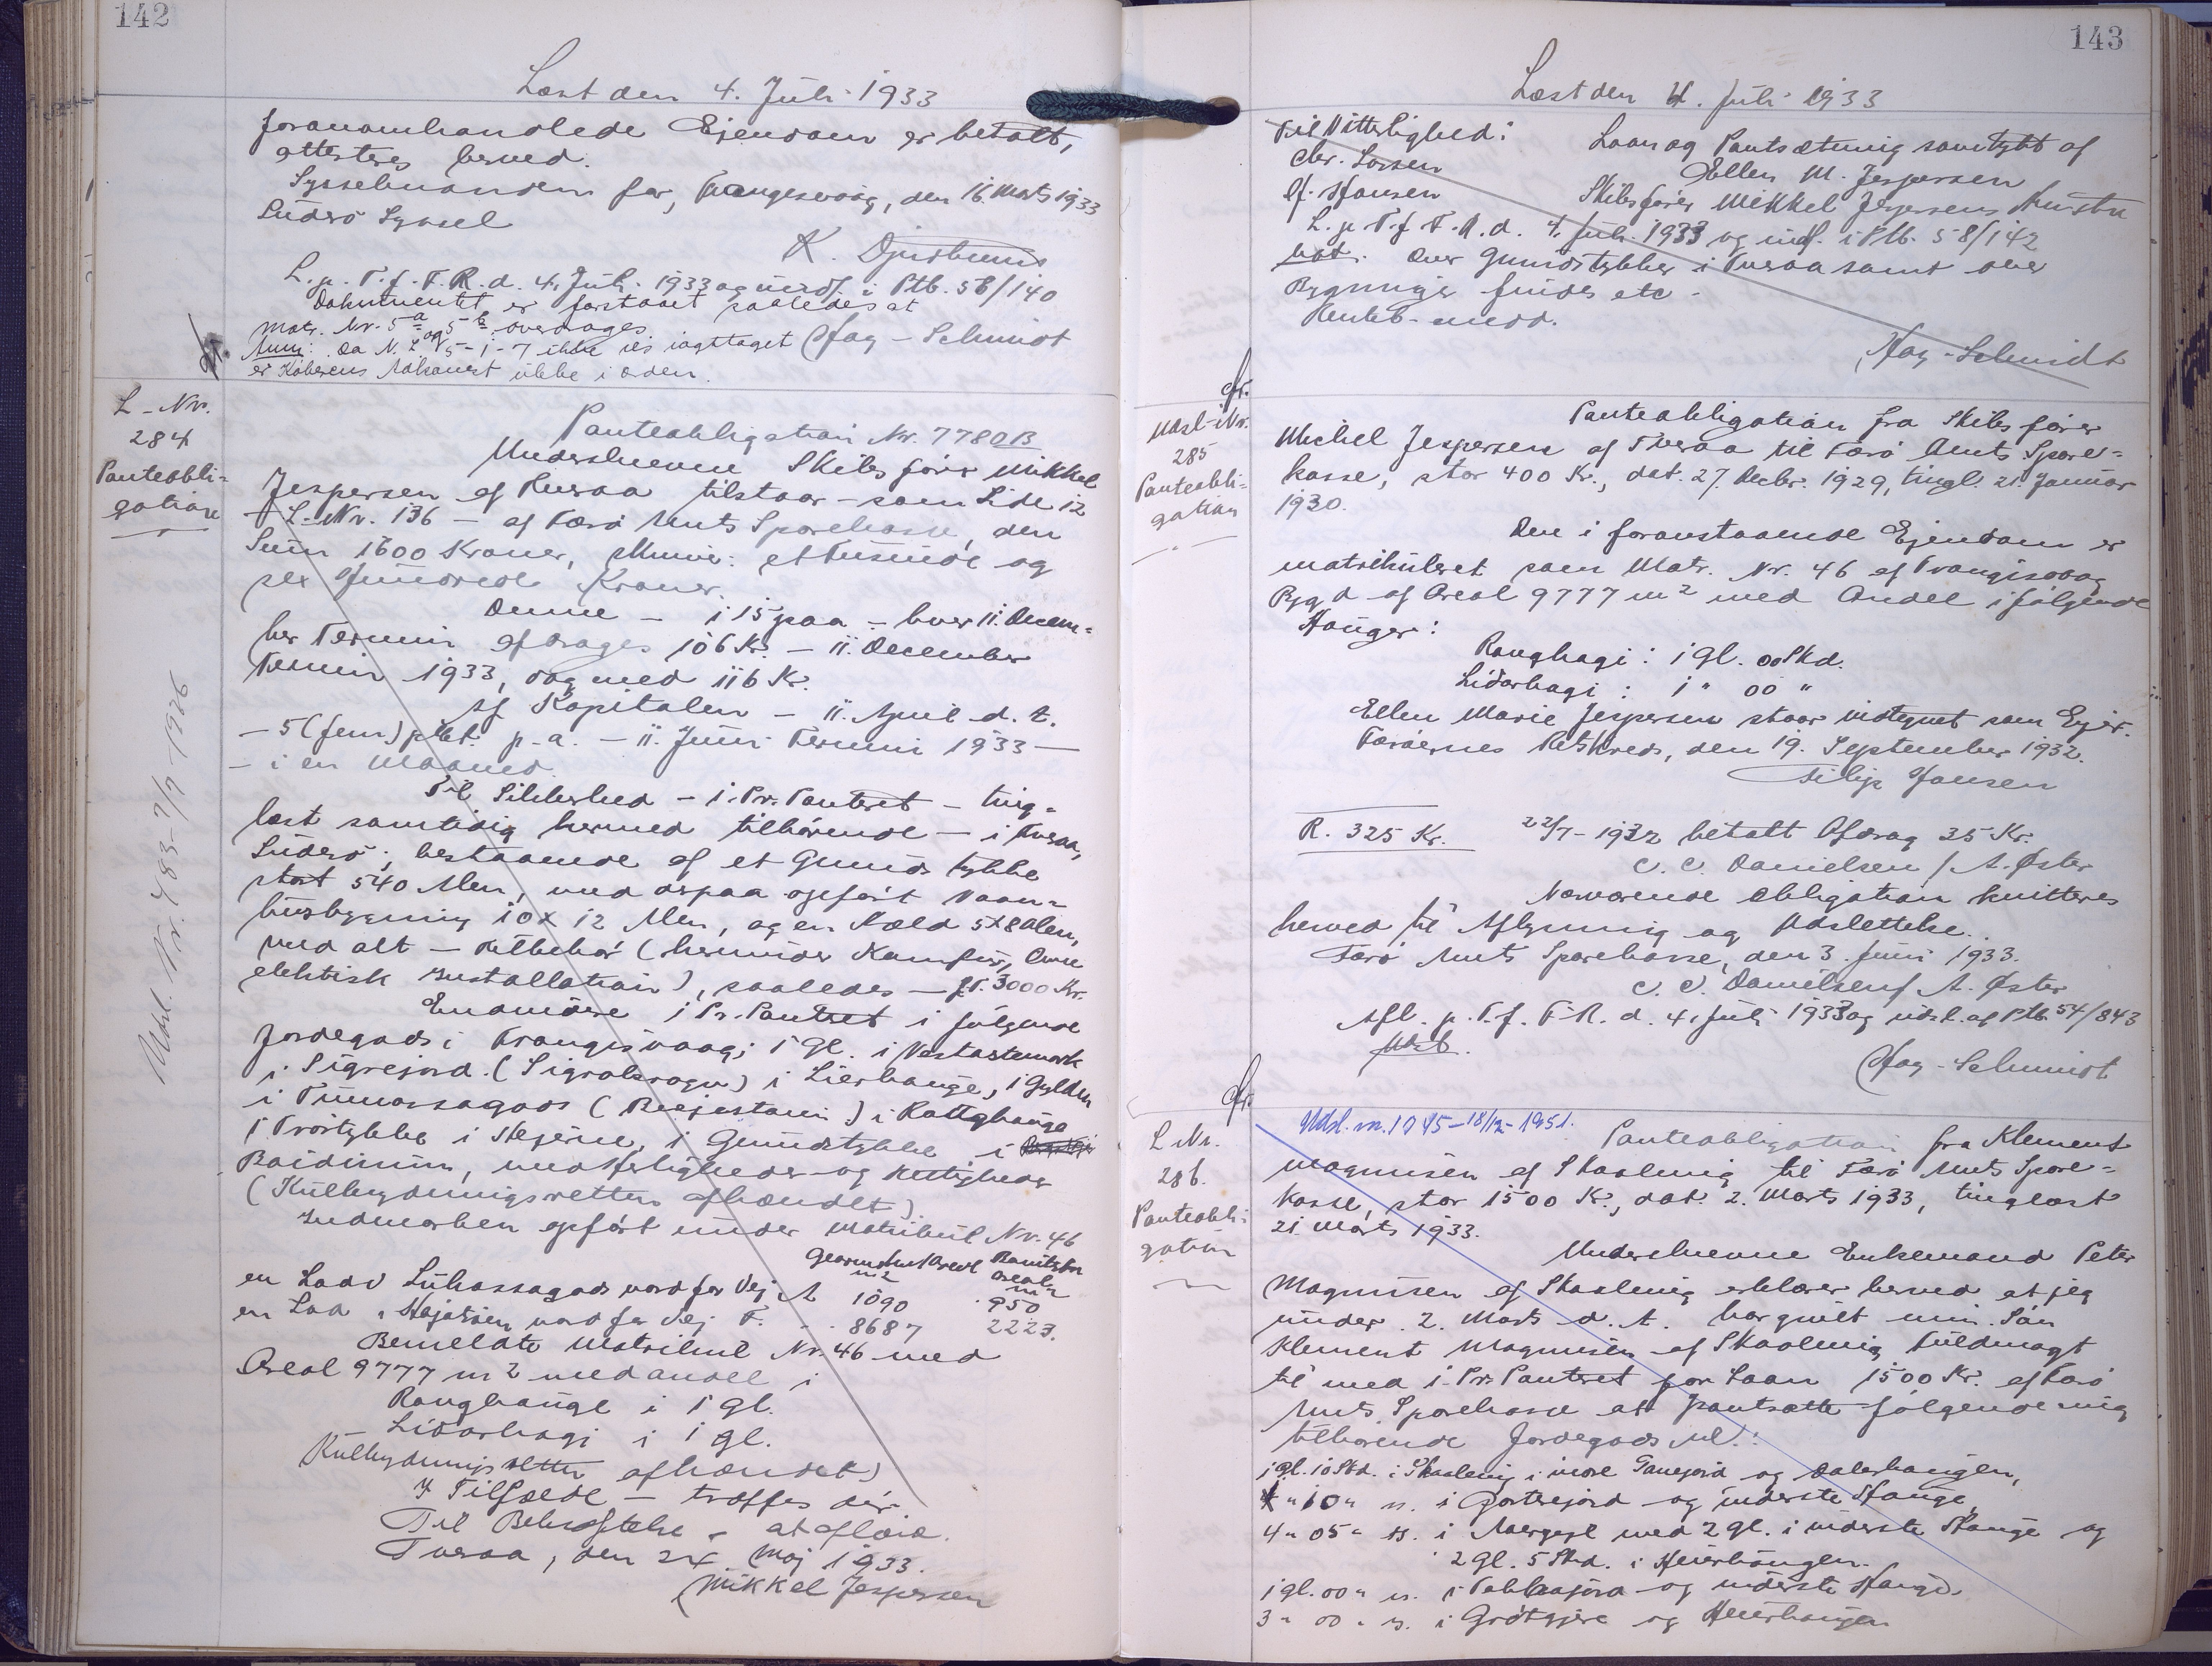 142
Læst den 4. Juli 1933
foranomhandlede Ejendom er betalt,
attesteres herved.
Sysselmanden for, Trangesvaag, den 16. Marts 1933
Suderø Syssel
K. Djurhuus
L. p. T. f. F. R. d. 4. Juli 1933 og indf. i Ptb. 58/140
Dokumentet er forstaaet saaledes at
Matr. Nr. 5a og 5b overdrages.
Anm: Da N. L. 5-1-7 ikke ses iagttaget
er Køberens Adkomst ikke i orden.
Hay-Schmidt
L-Nr.
284
Panteobli-
gation
Udsl. Nr. 483-7/7 1926
Panteobligation Nr. 7780B
Underskrevne Skibsfører Mikkel
Jespersen af Tveraa tilstaar - som Side 12
L-Nr. 136 - af Færø Amts Sparekasse, den
Sum 1600 Kroner, skriver: et tusinde og
sex Hundrede Kroner.
Denne - i 15 paa - hver 11. Decem-
ber Termin afdrages 106 Kr. - 11. December
Termin 1933, dog med 116 Kr.
Af Kapitalen - 11. April d. A.
- 5 (fem) pCt. p. a. - 11. Juni Termin 1933 -
- i en Maaned.
Til Sikkerhed - 1. Pr. Panteret - ting-
læst samtidig hermed tilhørende - i Tveraa,
Suderø, bestaaende af et Grundstykke
stort 540 Alen, med derpaa opført Vaan-
husbygning 10 x 12 Alen, og en Kæld 5x8 Alen,
med alt - Tilbehør (herunder Komfur, Ovne
elektrisk Installation), saaledes - f. 3000 Kr.
Endvidere 1 Pr. Panteret i følgende
Jordegods i Trangisvaag: 1 Gl. i
i Sigrejord. i Lierhauge, 1 Gylden
i i Rattghauge
1 Trøstykke i Skejerne, 1 Grundstykke i
Boidinum, med Herligheder og Rettigheder
(Kulbrydningsretten afhændet)
Indmarken opført under Matrikul Nr. 46
m2 m2
en Laad Luhassagods nord for Vej A 1090 950
en Laa " nord for Vej F. " 8687 2223.
Bemeldte Matrikul Nr. 46 med
Areal 9777 m2 med andel i
Ranghauge i 1 gl.
Lidarhagi i 1 gl.
Kulbrydningsretten afhændet)
I Tilfælde - træffes der
Til Bekræftelse - at aflæse.
Tveraa, den 24. Maj 1933.
Mikkel Jespersen
143
Læst den 4. Juli 1933
Til Vitterlighed: Laan og Pantsætning samtykt af
Chr. Larsen Ellen M. Jespersen
Hansen Skibsfører Mikkel Jespersens Hustru
L. p. T. f. F. R. d. 4. Juli 1933 og indf. i Ptb. 58/142
Not. Over Grundstykker i Tveraa samt over
Bygninger findes etc.
Hay-Schmidt
Udsl-Nr.
285
Panteobli-
gation
Panteobligation fra Skibsfører
Michel Jespersen af Tveraa til Færø Amts Spare-
kasse, stor 400 Kr., dat. 27. Decbr. 1929, tingl. 21. Januar
1930.
Den i foranstaaende Ejendom er
matrikuleret som Matr. Nr. 46 af Trangisvaag
Bygd af Areal 9777 m2 med Andel i følgende
Hauger:
Ranghagi: 1 gl. 00 Skd.
Lidarhagi: 1 " 00 "
Ellen Marie Jespersen staar indtegnet som Ejer.
Færøernes Retskreds, den 19. September 1932.
Filip Hansen
R. 325 Kr. 22/7-1932 betalt Afdrag 25 Kr.
C. C. Danielsen / A. Øster
Nærværende Obligation kvitteres
herved til Aflysning og Udslettelse.
Færø Amts Sparekasse, den 3. Juni 1933.
C. C. Danielsen / A. Øster
Afl. p. T. f. F. R. d. 4. Juli 1933 og udsl. af Ptb. 54/843
Hay-Schmidt
L Nr.
286.
Panteobli-
gation
Udsl. nr. 1045-18/12-1951.
Panteobligation fra Klement
Magnusen af Skaalevig til Færø Amts Spare-
kasse, stor 1500 Kr., dat. 2. Marts 1933, tinglæst
21 Marts 1933.
Underskrevne Enkemand Peter
Magnusen af Skaalevig erklærer herved at jeg
under 2. Marts d. A. har givet min Søn
Klement Magnusen af Skaalevig Fuldmagt
til med 1. Pr. Panteret for Laan 1500 Kr. af Færø
Amts Sparekasse at pantsætte følgende mig
tilhørende Jordegods nl.:
1 gl. 10 Skd. i Skaalevig i indre og Dalerhaugen,
" 10 " " i og inderste Hauge,
4 " 05 " " i med 2 gl. i inderste Hauge og
2 gl. 5 Skd. i Heierhaugen.
1 gl. 00 " " i og inderste Hauge
3 " 00 " " i og Heierhaugen